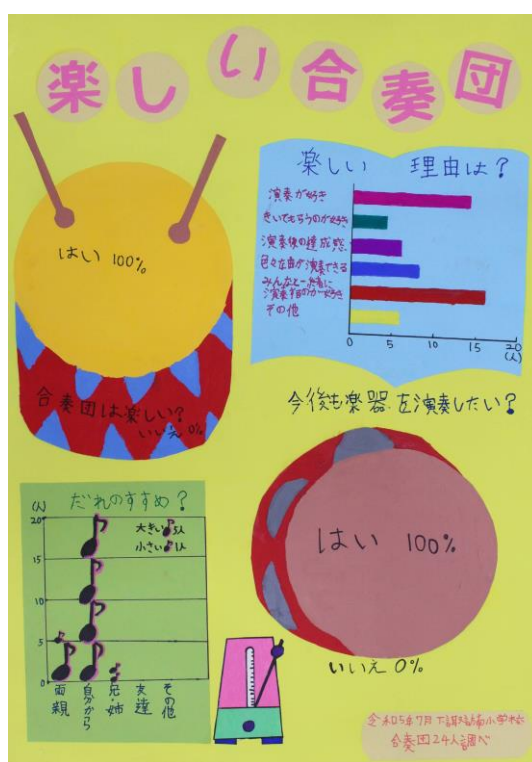 楽しい合奏団
はい 100%
合奏団は楽しい?
いいえ 0%
楽しい 理由は?
演奏が好き
きいてもらうのが好き
演奏後の達成感
色々な曲が演奏できる
みんなと一緒に
演奏するのが好き
その他
0 5 10 15 20
(人)
今後も楽器を演奏したい?
はい 100%
いいえ 0%
だれのすすめ?
(人)
大きい 5人
小さい 1人
20
15
10
5
0
両親
自分から
兄・姉
友達
その他
令和5年7月下諏訪南小学校
合奏団24人調べ